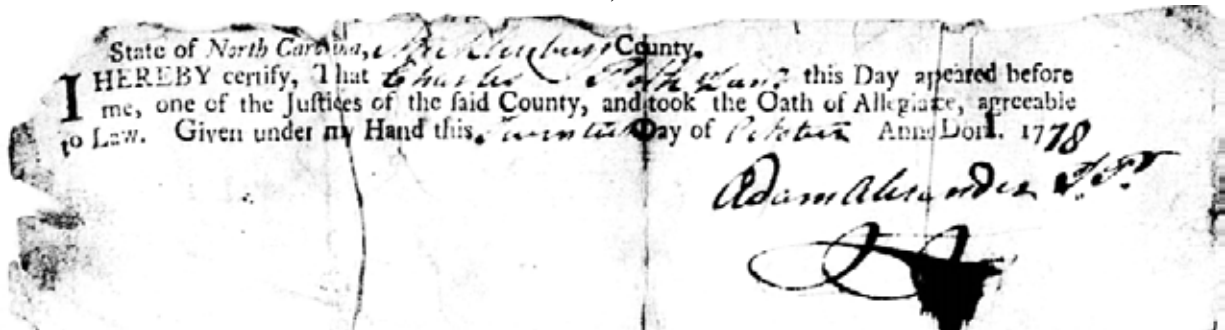 State of North Carolina, Mecklenburg County.
I HEREBY certify, That Charles Polk Junr. this Day apeared before
me, one of the Juſtices of the ſaid County, and took the Oath of Allegiance, agreeable
to Law. Given under my Hand this Twentieth Day of October Anno Dom. 1778
Adam Alexander J.P.